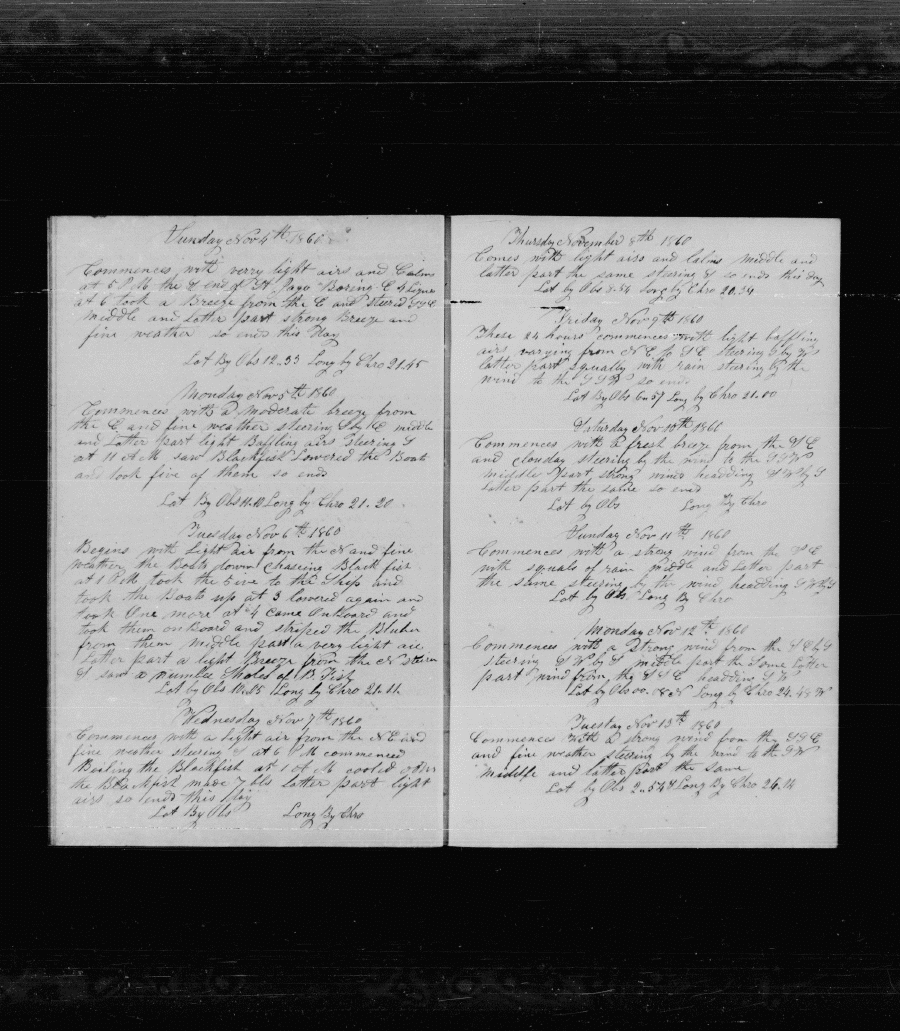 Sunday Nov 4th 1860
Commences with verry light airs and Calms
at 5 PM the E end of St Jago Baring E 4 Ligues
at 6 took a Breeze from the E and steered
Middle and latter part strong Breeze and
fine weather so ends this Day
Lat By Obs 12..33 Long by Chro 21.45
Monday Nov 5th 1860
Commences with a moderate breeze from
the E and fine weather steering S by E middle
and Latter part light Baffling airs Steering S
at 11 AM saw Blackfish Lowered the Boats
and took five of them so ends
Lat By Obs Long by Chro 21..20
Tuesday Nov 6th 1860
Begins with Light air from the N and fine
weather the Boats down Chaseing Black fish
at 1 PM took the five to the Ship and
took the Boats up at 3 lowered again and
took One more at 4 Came On board and
took them on Board and striped the Bluber
from them Middle part a very light air
Latter part a light Breeze from the N Steering
S saw a number Sholes of B. Fish
Lat by Obs Long by Chro 21..11
Wednesday Nov 7th 1860
Commences with a light air from the N E and
fine weather steering S at 6 PM commenced
Boiling the Blackfish at 1 of M cooled down
the Blackfish made 7 bls latter part light
airs so ends this Day
Lat By Obs Long By Chro
Thursday November 8th 1860
Comes with light airs and Calms Middle and
latter part the same steering S so ends this day
Lat by Obs 8.54 Long by Chro 20.34
Friday Nov 9th 1860
These 24 hours commences with light baffling
airs varying from N E to S E steering S by W
latter part squally with rain steering by the
wind to the S S W so ends
Lat By Obs 6..57 Long by Chro 21..00
Saturday Nov 10th 1860
Commences with a fresh breeze from the S E
and clouday steering by the wind to the S S W
Middle part strong winds headding S W by S
latter part the same so ends
Lat by Obs Long By Chro
Sunday Nov 11th 1860
Commences with a strong wind from the S E
with squals of rain middle and Latter part
the same steering by the wind headding S W by S
Lat by Obs Long By Chro
Monday Nov 12th 1860
Commences with a Strong wind from the S E by S
steering S W by S middle part the Same Latter
part wind from the S S E headding S W
Lat by Obs Long by Chro 24..48 W
Tuesday Nov 13th 1860
Commences with a strong wind from the S S E
and fine weather steering by the wind to the S W
Middle and latter part the same
Lat by Obs Long By Chro 26.14